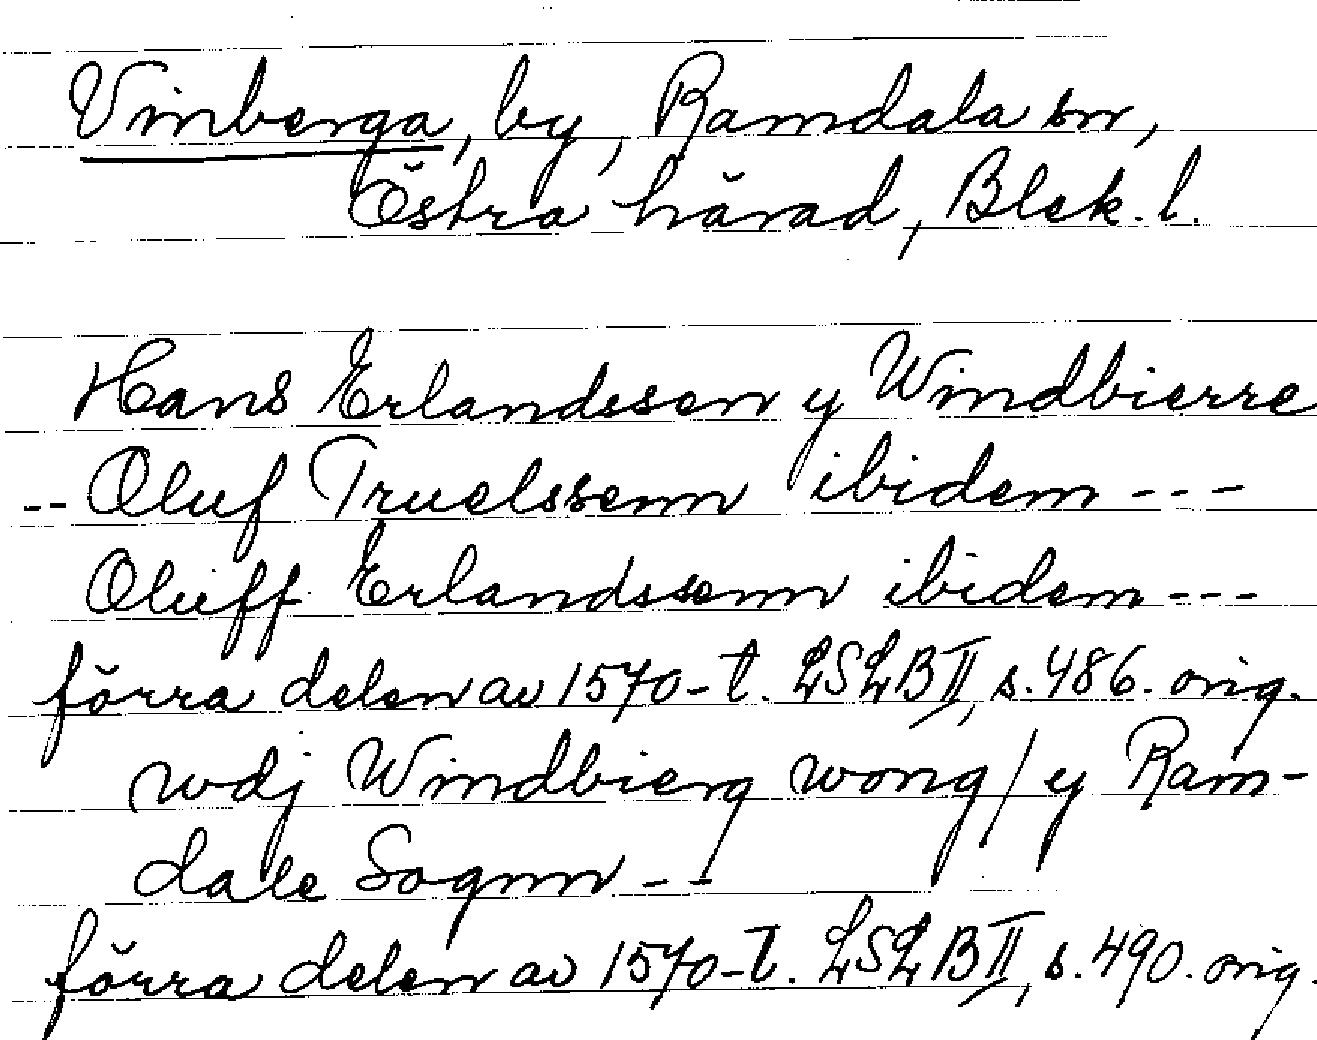 Vinberga, by, Ramdala sn,
Östra härad, Blek. l.
Hans Erlandssen y Windbierre
-- Oluf Truelssenn ibidem ---
Oluff Erlandssenn ibidem ---
förra delen av 1570-t. LSLB II, s. 486. orig.
wdj Windbierg wong / y Ram-
dale Sognn --
förra delen av 1570-t. LSLB II, s. 490. orig.